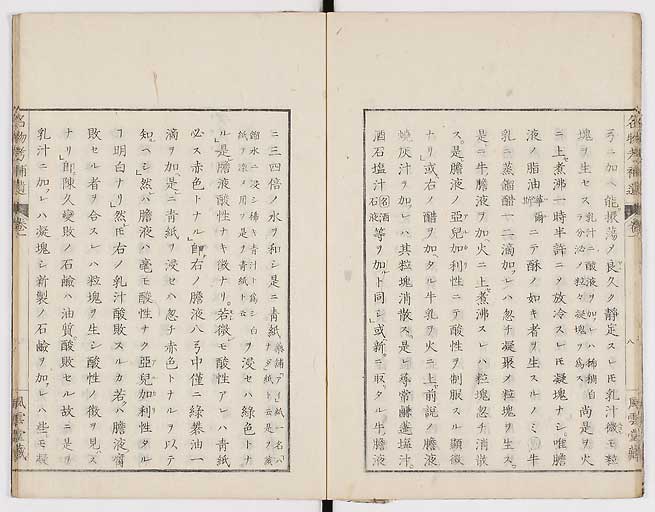 名物考補遺
卷一
八
風雲堂藏
弓ニ加ヘ能振蕩〆良久ク靜定スレ𪜈乳汁微モ粒
塊ヲ生セス 乳汁ニ酸液ヲ加レハ稀稠自ラ分泌ノ粒々凝塊ヲ爲ス 尚是ヲ火
ニ上煮沸一時半許ニ〆放冷スレ𪜈凝塊ナシ唯膽
液ノ脂油ニテ酥ノ如キ者ヲ生スルノミ牛
乳ニ蒸餾醋一二滴加レハ忽チ凝聚〆粒塊ヲ生ス
是ニ牛膽液ヲ加火ニ上煮沸スレハ粒塊忽チ消散
ス是膽液ノ亞兒加利性ニテ酸性ヲ制服スル顯徵
ナリ或右ノ醋ヲ加タル牛乳ヲ火ニ上前説ノ膽液
燒灰汁ヲ加レハ其粒塊消散ス是レ尋常鹻蓬塩汁
酒石塩汁 等ヲ加ト同シ或新ニ取タル牛膽液
ニ三四倍ノ水ヲ和シ是ニ青紙
餾水ニ浸シ稀キ青汁ト爲シ白紙ヲ染メ用フ是ヲ青紙ト云 ヲ浸セハ綠色トナ
ル是膽液酸性ナキ徵ナリ若微モ酸性アレハ青紙
必ス赤色トナル即右ノ膽液八弓中僅ニ綠礬油一
滴ヲ加是ニ青紙ヲ浸セハ忽チ赤色トナルヲ以テ
知ヘシ然ハ膽液ハ毫モ酸性ナク亞兒加利性タル
ヿ明白ナリ然𪜈右ノ乳汁酸敗スルカ若ハ膽液腐
敗セル者ヲ合スレハ粒塊ヲ生シ酸性ノ徵ヲ見ス
ナリ即陳久變敗ノ石鹼ハ油質酸敗セル故ニ是ヲ
乳汁ニ加レハ凝塊シ新製ノ石鹼ヲ加レハ些モ凝
名物考補遺
卷一
風雲堂藏